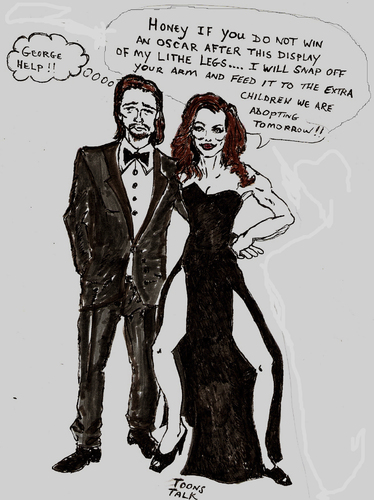 HONEY IF YOU DO NOT WIN
AN OSCAR AFTER THIS DISPLAY
OF MY LITHE LEGS.... I WILL SNAP OFF
YOUR ARM AND FEED IT TO THE EXTRA
CHILDREN WE ARE
ADOPTING
TOMORROW!!
GEORGE
HELP!!
TOONS
TALK